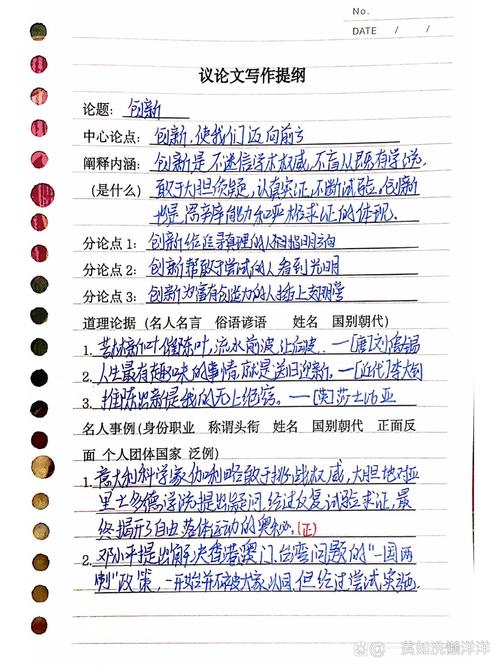 No.
DATE / /
议论文写作提纲
论题：创新
中心论点：创新，使我们迈向前方
阐释内涵：创新是不迷信学术权威，不盲从既有学说，
（是什么）敢于大胆质疑，认真实证，不断试验。创新
也是
能力和严格求证的体现。
分论点 1：创新给追寻真理的人指明方向
分论点 2：创新帮敢于尝试的人看到光明
分论点 3：创新为富有创造力的人插上翅膀
道理论据（名人名言 俗语谚语 姓名 国别朝代）
1. 芳林新叶催陈叶，流水前波让后波。——[唐]刘禹锡
2. 人生最有趣味的事情，就是送旧迎新。——[近代]李大钊
3. 推陈出新是我的无上绝窍。——[英]莎士比亚
名人事例（身份职业 称谓头衔 姓名 国别朝代 正面反
面 个人团体国家 泛例）
1. 意大利科学家伽利略敢于挑战权威，大胆地对亚
里士多德学院提出疑问，经过反复试验求证，最
终揭开了自由落体运动的奥秘。(正)
2. 邓小平提出解决香港澳门、台湾问题的“一国两
制”政策，一开始并不被大家认同，但经过尝试实施。
黄如洗懒洋洋